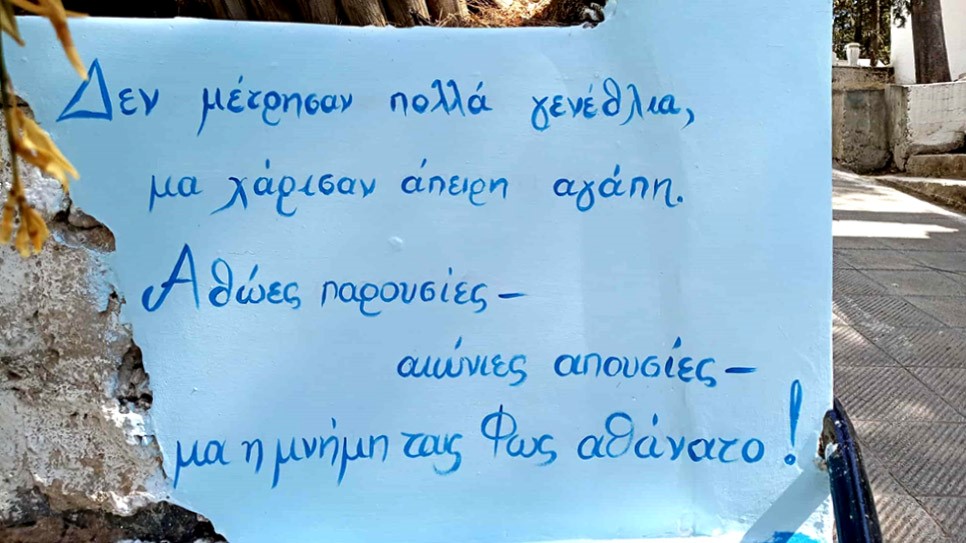 Δεν μέτρησαν πολλά γενέθλια,
μα χάρισαν άπειρη αγάπη.
Αθώες παρουσίες –
αιώνιες απουσίες –
μα η μνήμη τους Φως αθάνατο!